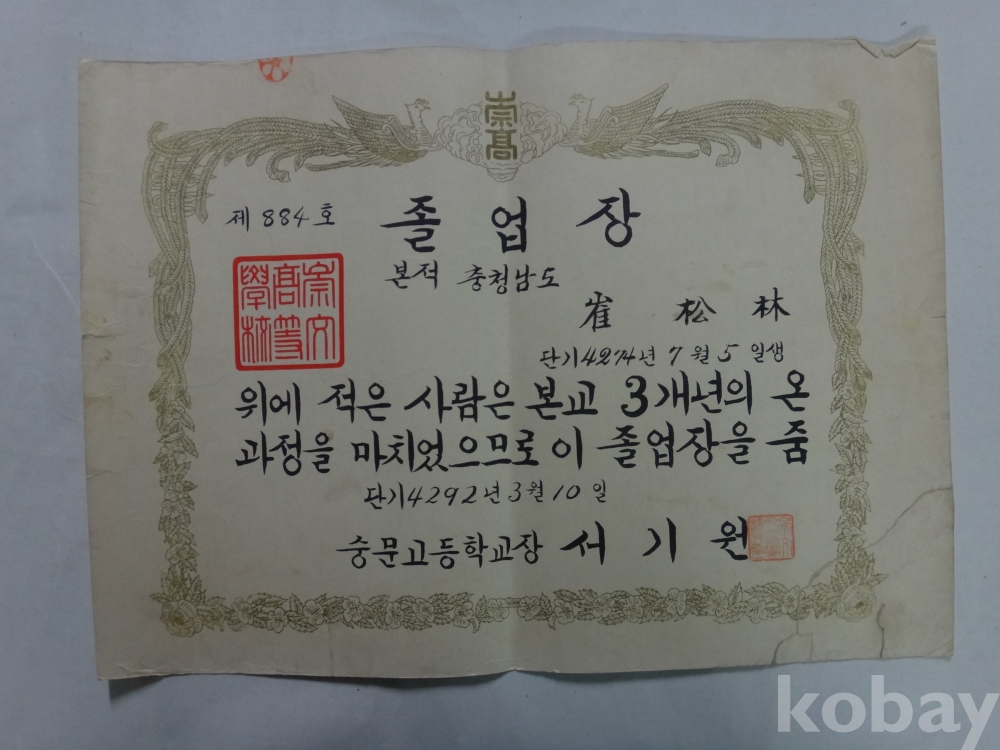 崇高
제 884 호
졸 업 장
본적 충청남도
崇文
高等
學校
崔 松 林
단기 4274년 7월 5일생
위에 적은 사람은 본교 3개년의 온
과정을 마치었으므로 이 졸업장을 줌
단기 4292년 3월 10일
숭문고등학교장 서 기 원
kobay